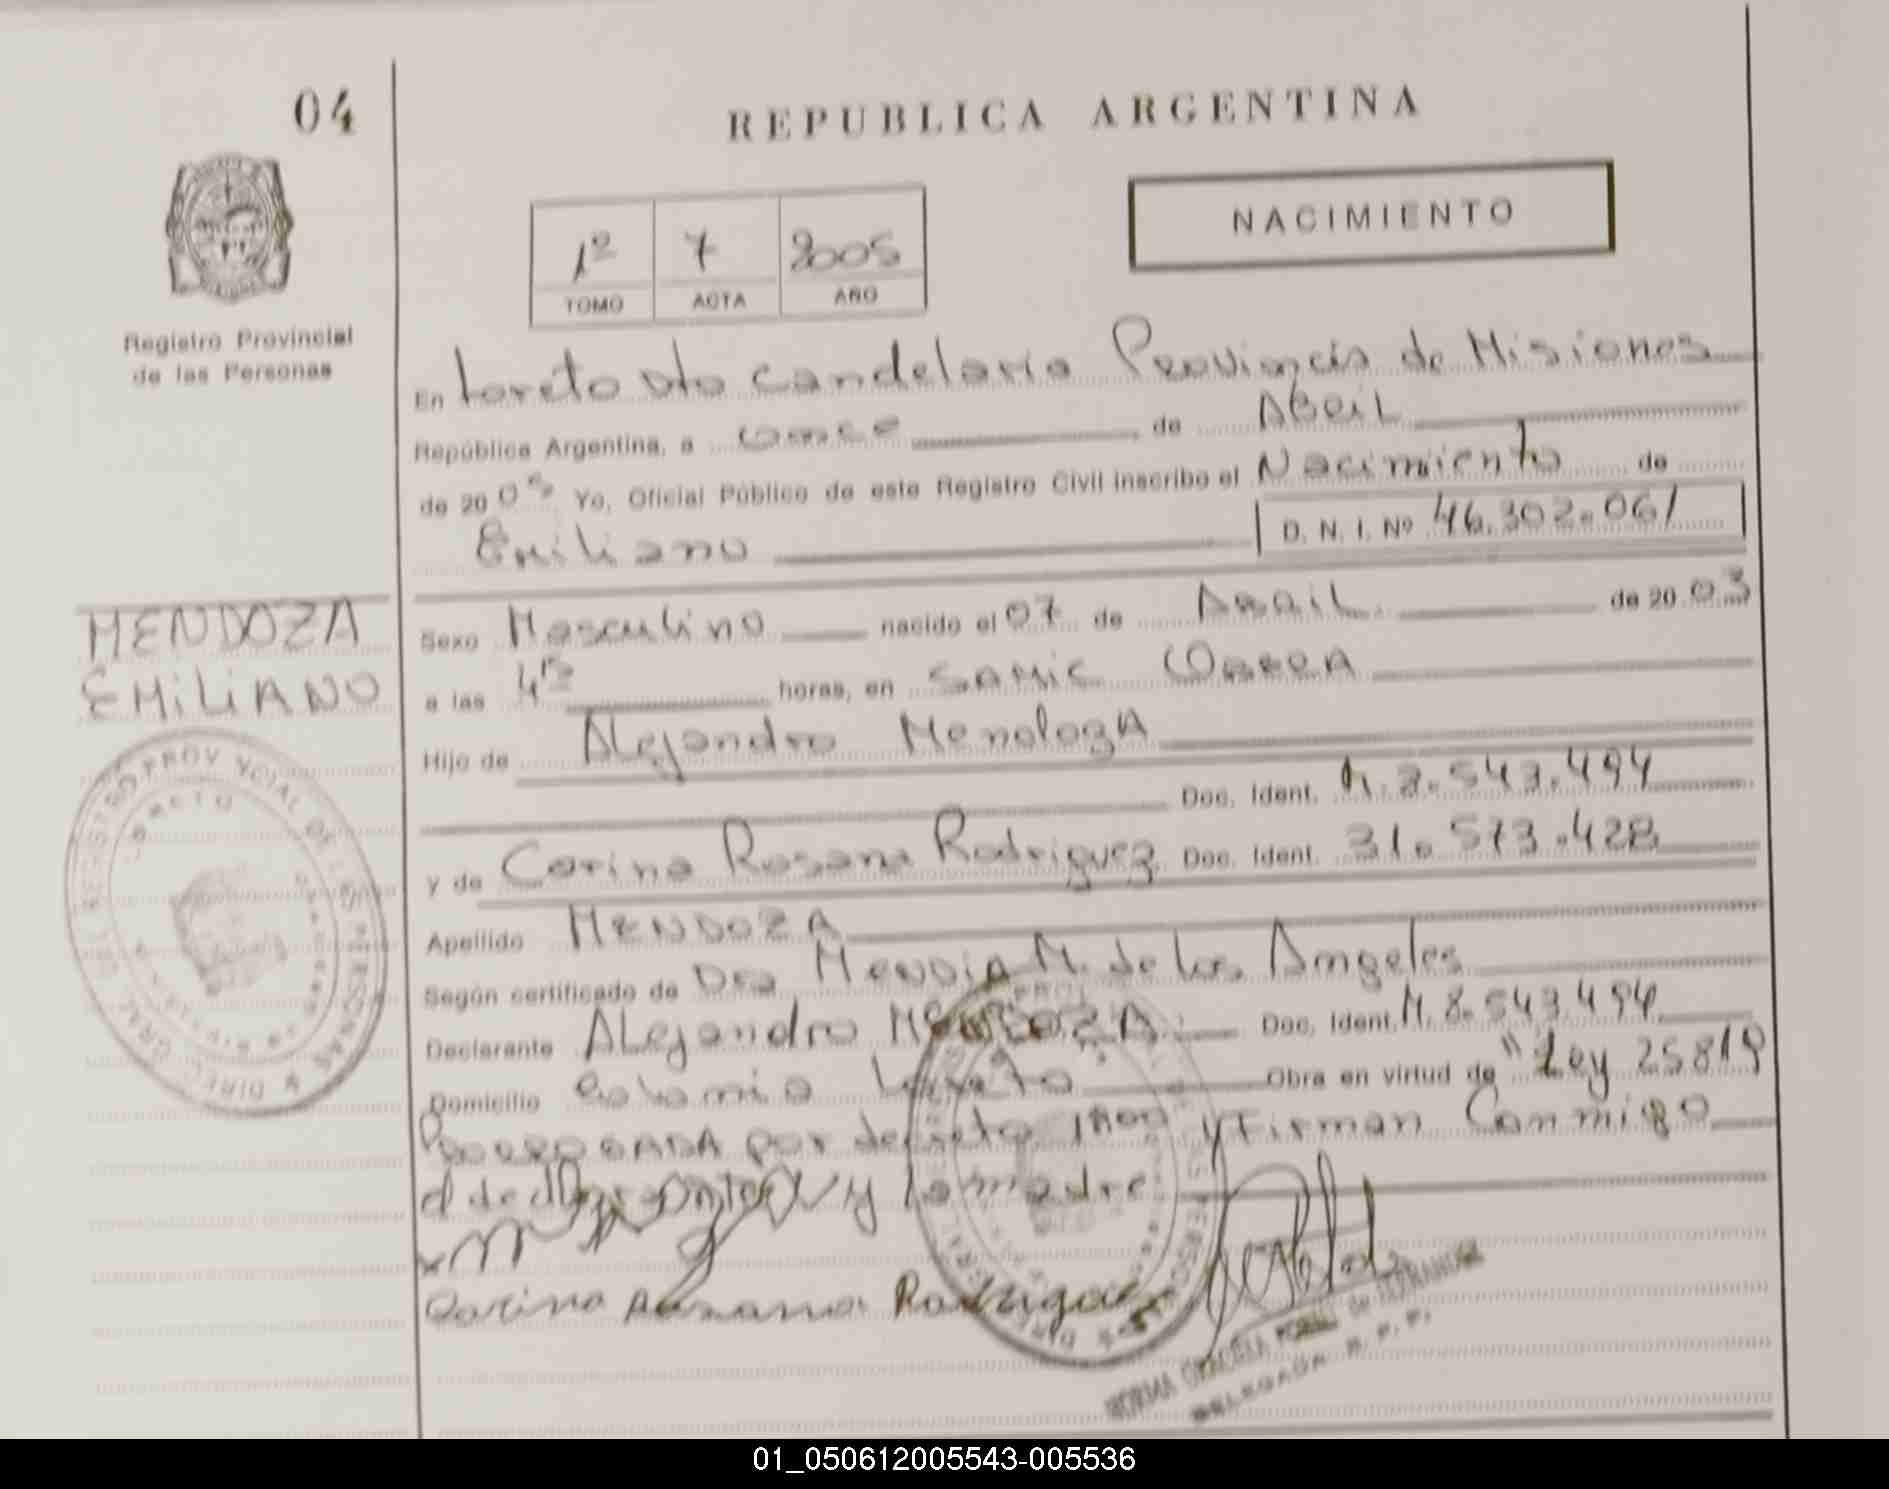 04
REPUBLICA ARGENTINA
NACIMIENTO
1º 7 2005
TOMO ACTA AÑO
Registro Provincial
de las Personas
En Loreto Dto Candelaria Provincia de Misiones
República Argentina, a once de ABRIL
de 2005 Yo, Oficial Público de este Registro Civil inscribo el Nacimiento de
Emiliano D. N. I. Nº 46.302.061
MENDOZA
EMILIANO
Sexo Masculino nacido el 07 de ABRIL de 2003
a las 4 horas, en SAMIC OBERA
Hijo de Alejandro Mendoza
Doc. Ident. M. 8.543.494
y de Carina Rosana Rodriguez Doc. Ident. 31.573.428
Apellido MENDOZA
Según certificado de Dra MENDIA M. de los Angeles
Declarante Alejandro MENDOZA Doc. Ident. M. 8.543.494
Domicilio Colonia Loreto Obra en virtud de "Ley 25819
PRORROGADA por decreto y Firman Conmigo
el declarante y la madre
Carina Rosana Rodriguez
NORMA GRACIELA
DELEGADA R. P. P.
01_050612005543-005536